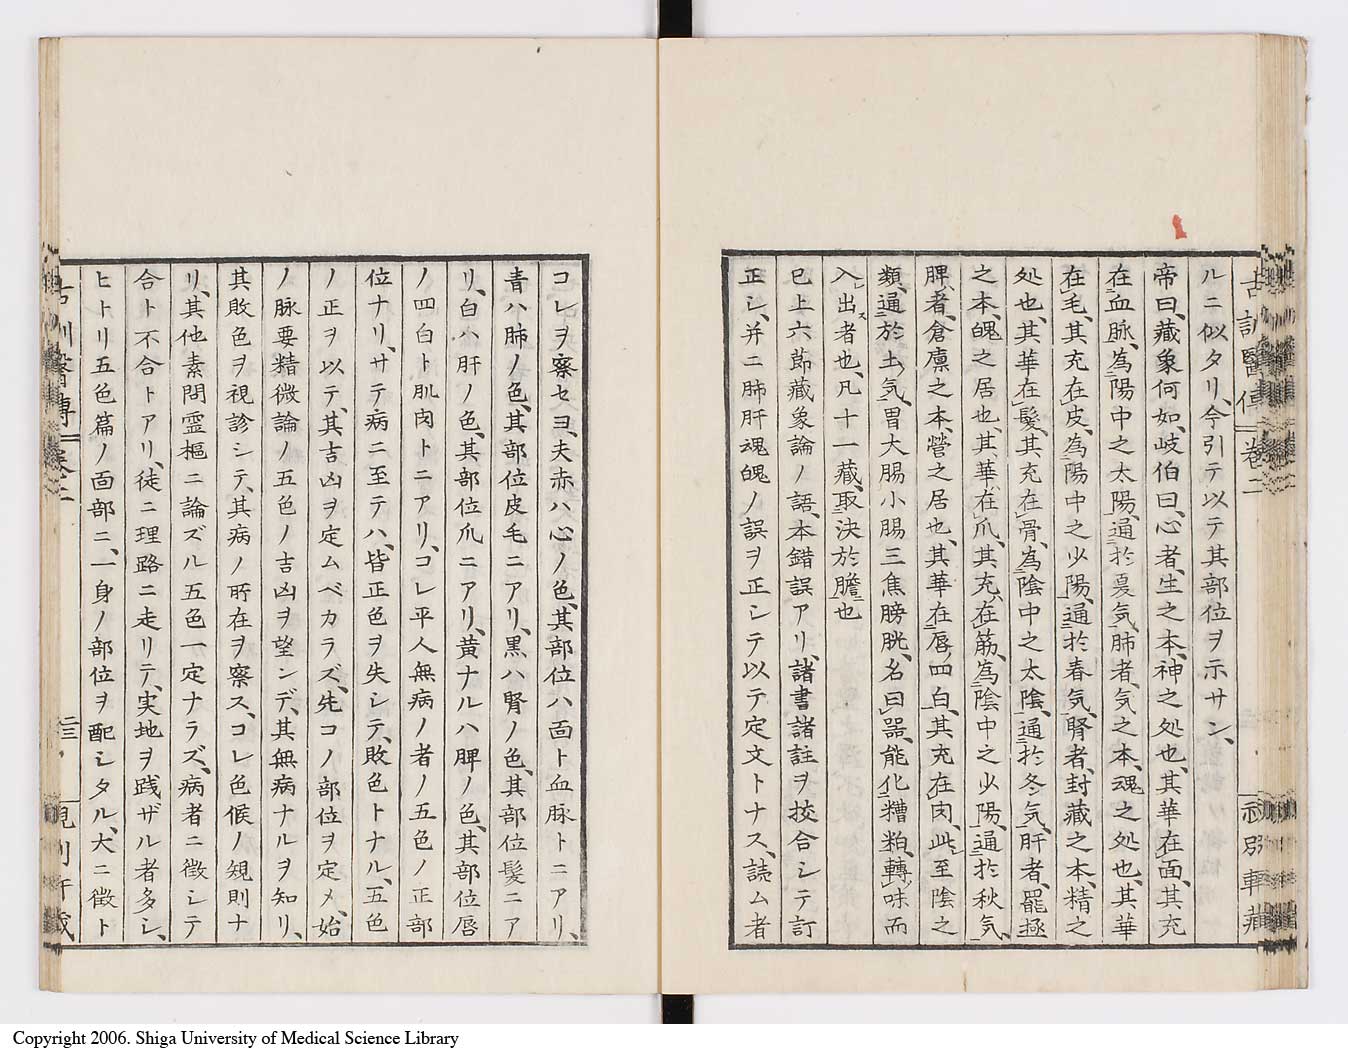 ルニ似タリ、今引テ以テ其部位ヲ示サン、
帝曰、藏象何如、岐伯曰、心者、生之本、神之処也、其華在面、其充
在血脈、為陽中之太陽、通於夏気、肺者、気之本、魂之処也、其華
在毛、其充在皮、為陽中之少陽、通於春気、腎者、封藏之本、精之
処也、其華在髮、其充在骨、為陰中之太陰、通於冬気、肝者、罷極
之本、魄之居也、其華在爪、其充在筋、為陰中之少陽、通於秋気、
脾者、倉廩之本、營之居也、其華在唇四白、其充在肉、此至陰之
類、通於土気、胃大腸小腸三焦膀胱、名曰器、能化糟粕、轉味而
入出者也、凡十一藏、取決於膽也
已上六節藏象論ノ語、本錯誤アリ、諸書諸註ヲ挍合シテ訂
正シ、并ニ肺肝魂魄ノ誤ヲ正シテ以テ定文トナス、誌ム者
コレヲ察セヨ、夫赤ハ心ノ色、其部位ハ面ト血脈トニアリ、
青ハ肺ノ色、其部位皮毛ニアリ、黒ハ腎ノ色、其部位髪ニア
リ、白ハ肝ノ色、其部位爪ニアリ、黄ナルハ脾ノ色、其部位唇
ノ四白ト肌肉トニアリ、コレ平人無病ノ者ノ五色ノ正部
位ナリ、サテ病ニ至テハ、皆正色ヲ失シテ、敗色トナル、五色
ノ正ヲ以テ、其吉凶ヲ定ムベカラズ、先コノ部位ヲ定メ、始
ノ脈要精微論ノ五色ノ吉凶ヲ望ンデ、其無病ナルヲ知リ、
其敗色ヲ視診シテ、其病ノ所在ヲ察ス、コレ色候ノ規則ナ
リ、其他素問霊樞ニ論ズル五色一定ナラズ、病者ニ徴シテ
合ト不合トアリ、徒ニ理路ニ走リテ、実地ヲ践ザル者多シ、
ヒトリ五色篇ノ面部ニ、一身ノ部位ヲ配シタル、大ニ徴ト
Copyright 2006. Shiga University of Medical Science Library